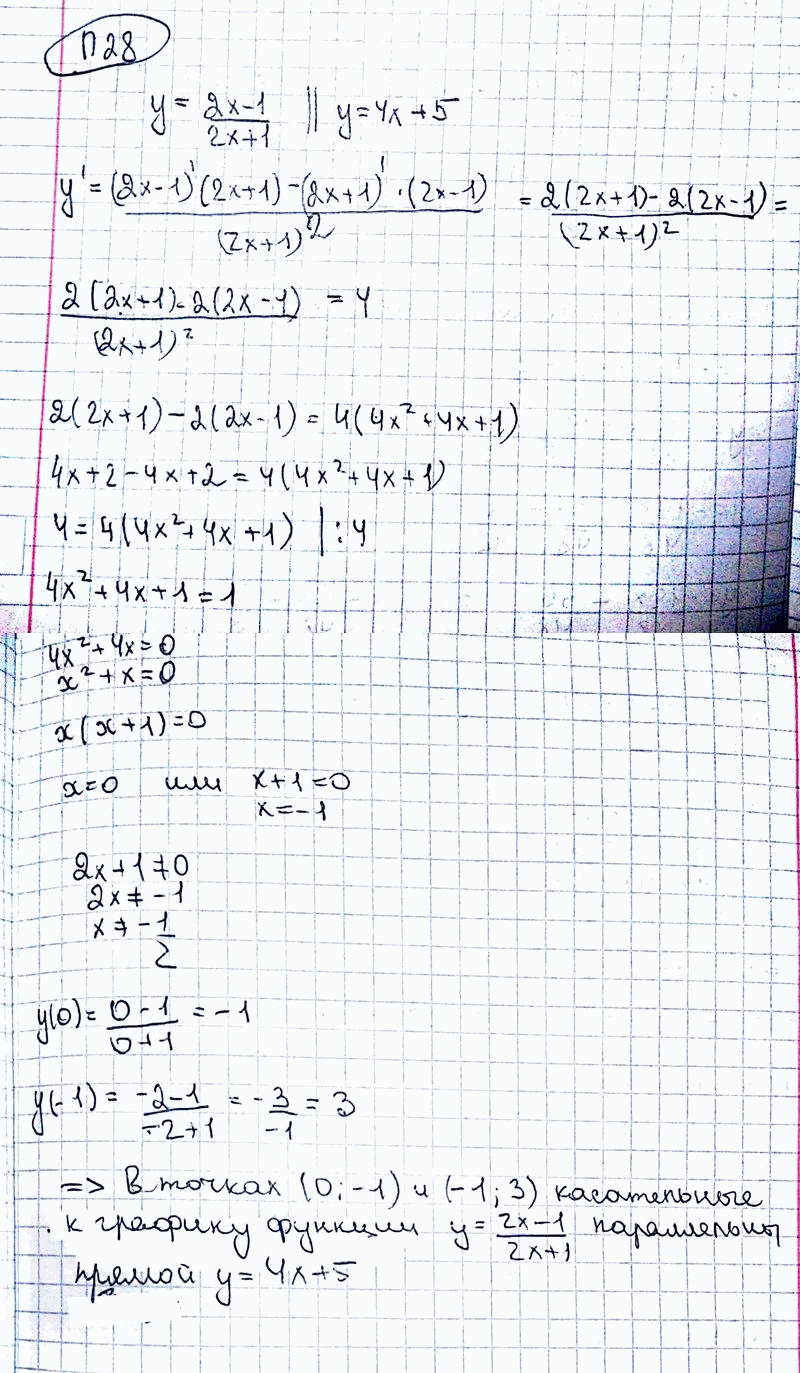 П28
y = (2x-1)/(2x+1) || y=4x+5
y' = ((2x-1)'(2x+1) - (2x+1)'·(2x-1))/(2x+1)² = (2(2x+1) - 2(2x-1))/(2x+1)² =
(2(2x+1) - 2(2x-1))/(2x+1)² = 4
2(2x+1) - 2(2x-1) = 4(4x²+4x+1)
4x+2-4x+2 = 4(4x²+4x+1)
4 = 4(4x²+4x+1) |:4
4x²+4x+1=1
4x²+4x=0
x²+x=0
x(x+1)=0
x=0 или x+1=0
x=-1
2x+1≠0
2x≠-1
x≠-1/2
y(0) = (0-1)/(0+1) = -1
y(-1) = (-2-1)/(-2+1) = -3/-1 = 3
=> В точках (0;-1) и (-1;3) касательные
к графику функции y = (2x-1)/(2x+1) параллельны
прямой y=4x+5